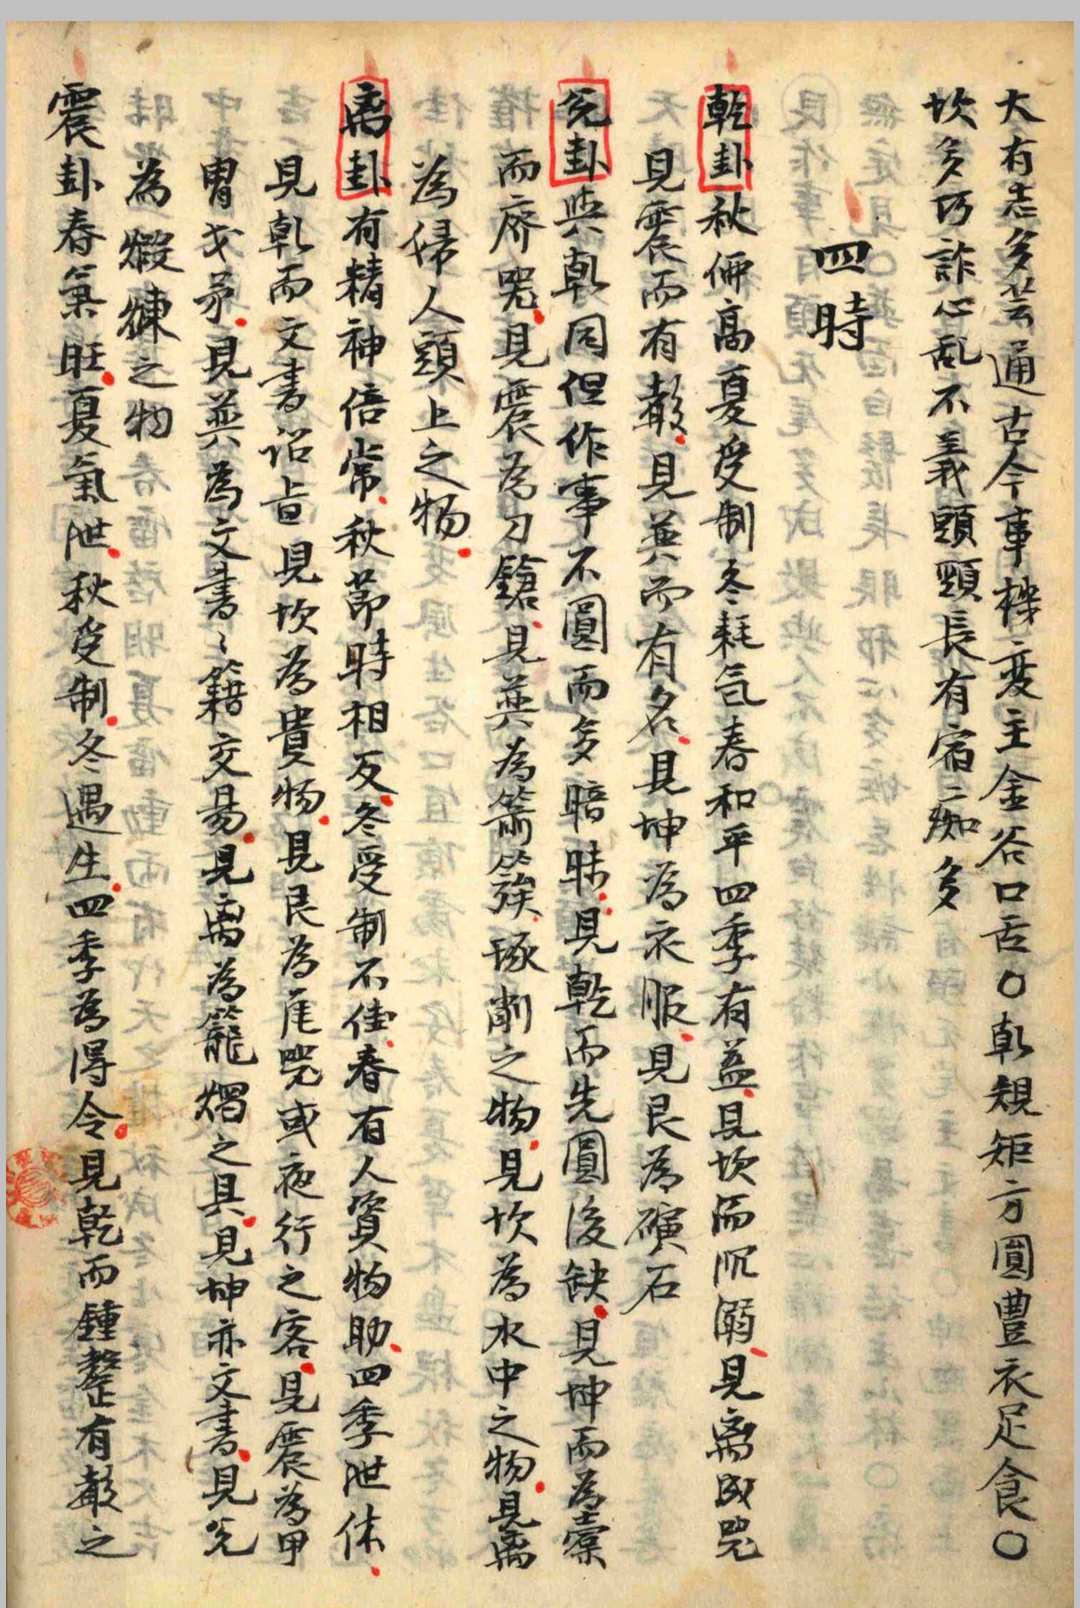 大有志多芸通古今事機変主金谷口舌〇乾規矩方圓豊衣足食〇
坎多巧詐心乱不義頭頸長有宿二痴多
四時
乾卦秋佈高夏受制冬耗气春和平四季有益見坎而沉溺見离成咒
見震而有声見巽而有名見坤為衣服見艮為礦石
兌卦與乾同但作事不圓而多暗昧見乾而先圓後缺見坤而為橐
而廢咒見震為刀鎗見巽為簫簇琢削之物見坎為水中之物見离
為婦人頭上之物
离卦有精神倍常秋節時相反冬受制不佳春有人資物助四季泄体
見乾而文書詔旨見坎為貴物見艮為庄咒或夜行之客見震為甲
冑戈矛見巽為文書〻籍交易見离為籠燭之具見坤亦文書見兌
為煅煉之物
震卦春氣旺夏氣泄秋受制冬遇生四季為得令見乾而鍾磬有聲之